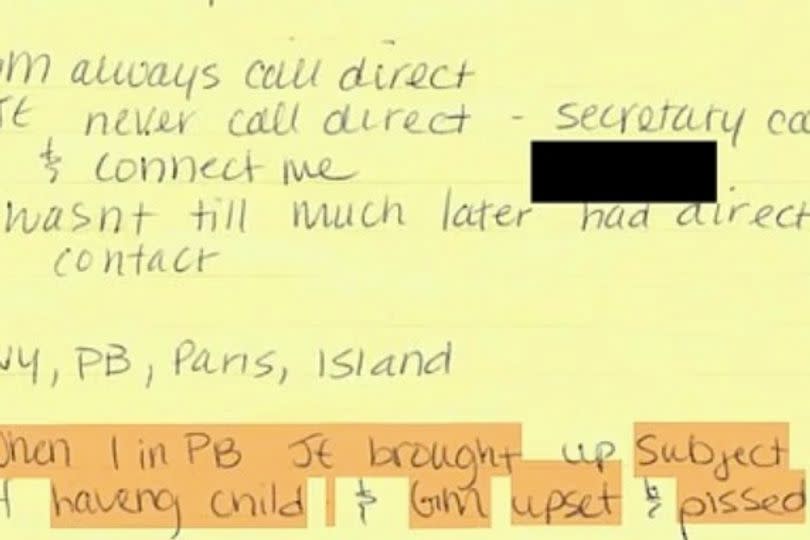 always call direct
JE never call direct - secretary
& connect me
wasnt till much later had direct
contact
NY, PB, Paris, Island
When I in PB JE brought up subject
haveng child & GM upset & pissed